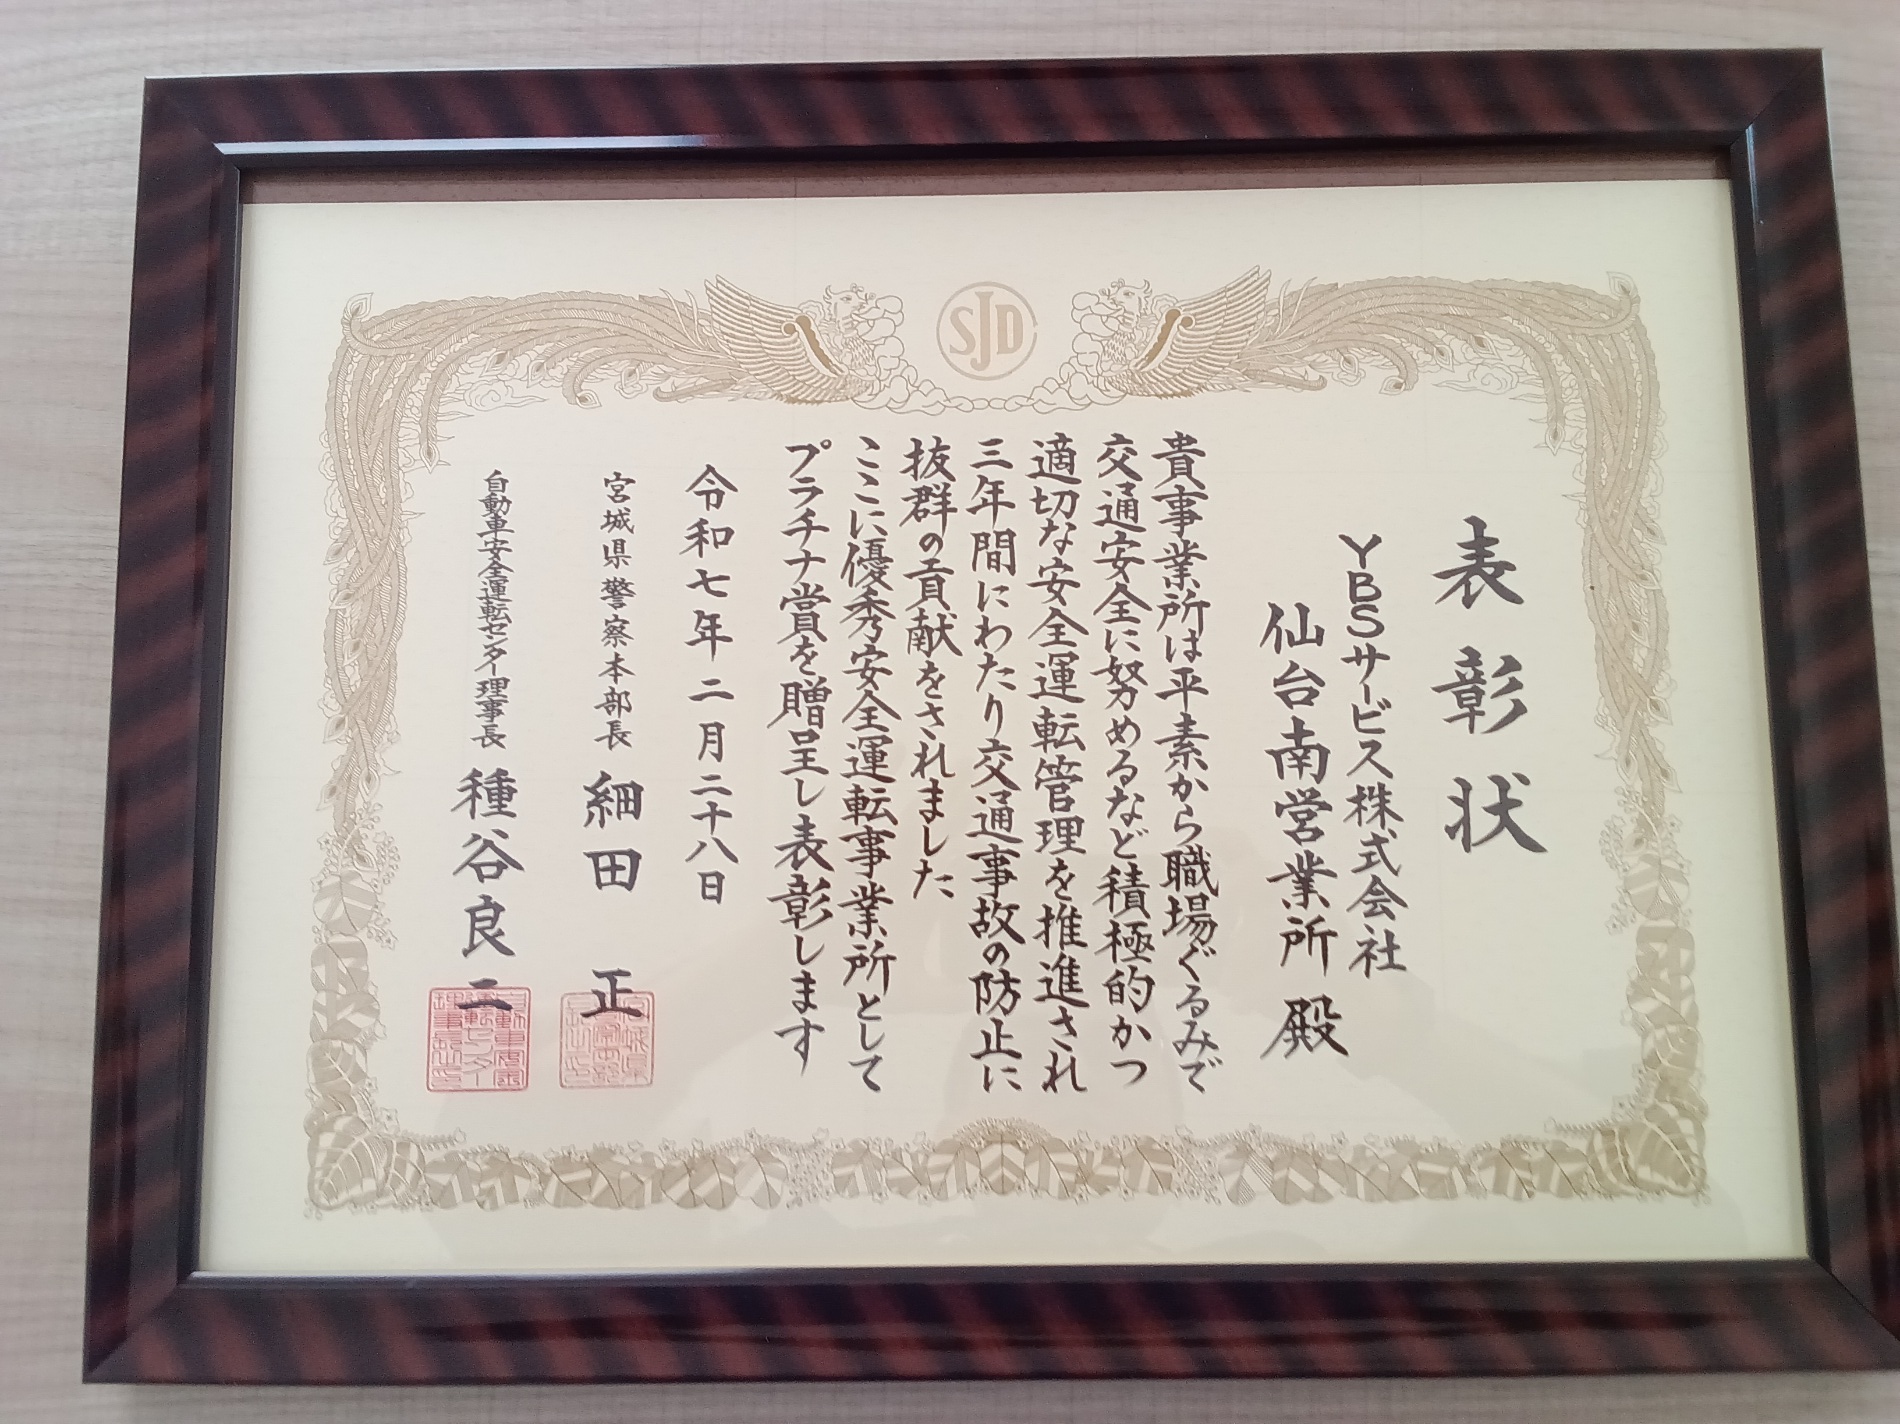 SJD
表彰状
YBSサービス株式会社
仙台南営業所 殿
貴事業所は平素から職場ぐるみで
交通安全に努めるなど積極的かつ
適切な安全運転管理を推進され
三年間にわたり交通事故の防止に
抜群の貢献をされました
ここに優秀安全運転事業所として
プラチナ賞を贈呈し表彰します
令和七年二月二十八日
宮城県警察本部長 細田 正
自動車安全運転センター理事長 種谷良二